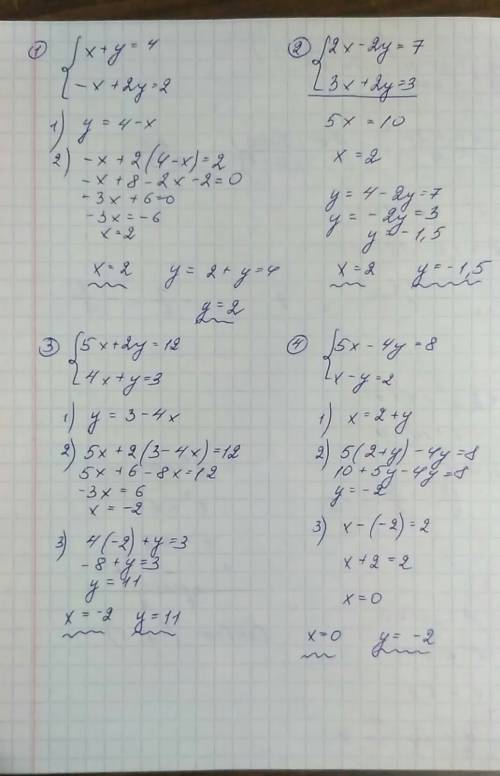 ① { x+y=4
-x+2y=2
1) y=4-x
2) -x+2(4-x)=2
-x+8-2x-2=0
-3x+6=0
-3x=-6
x=2
x=2 y=2+y=4
y=2
② { 2x-2y=7
3x+2y=3
5x=10
x=2
y=4-2y=7
y=-2y=3
y=-1,5
x=2 y=-1,5
③ { 5x+2y=12
4x+y=3
1) y=3-4x
2) 5x+2(3-4x)=12
5x+6-8x=12
-3x=6
x=-2
3) 4(-2)+y=3
-8+y=3
y=11
x=-2 y=11
④ { 5x-4y=8
x-y=2
1) x=2+y
2) 5(2+y)-4y=8
10+5y-4y=8
y=-2
3) x-(-2)=2
x+2=2
x=0
x=0 y=-2